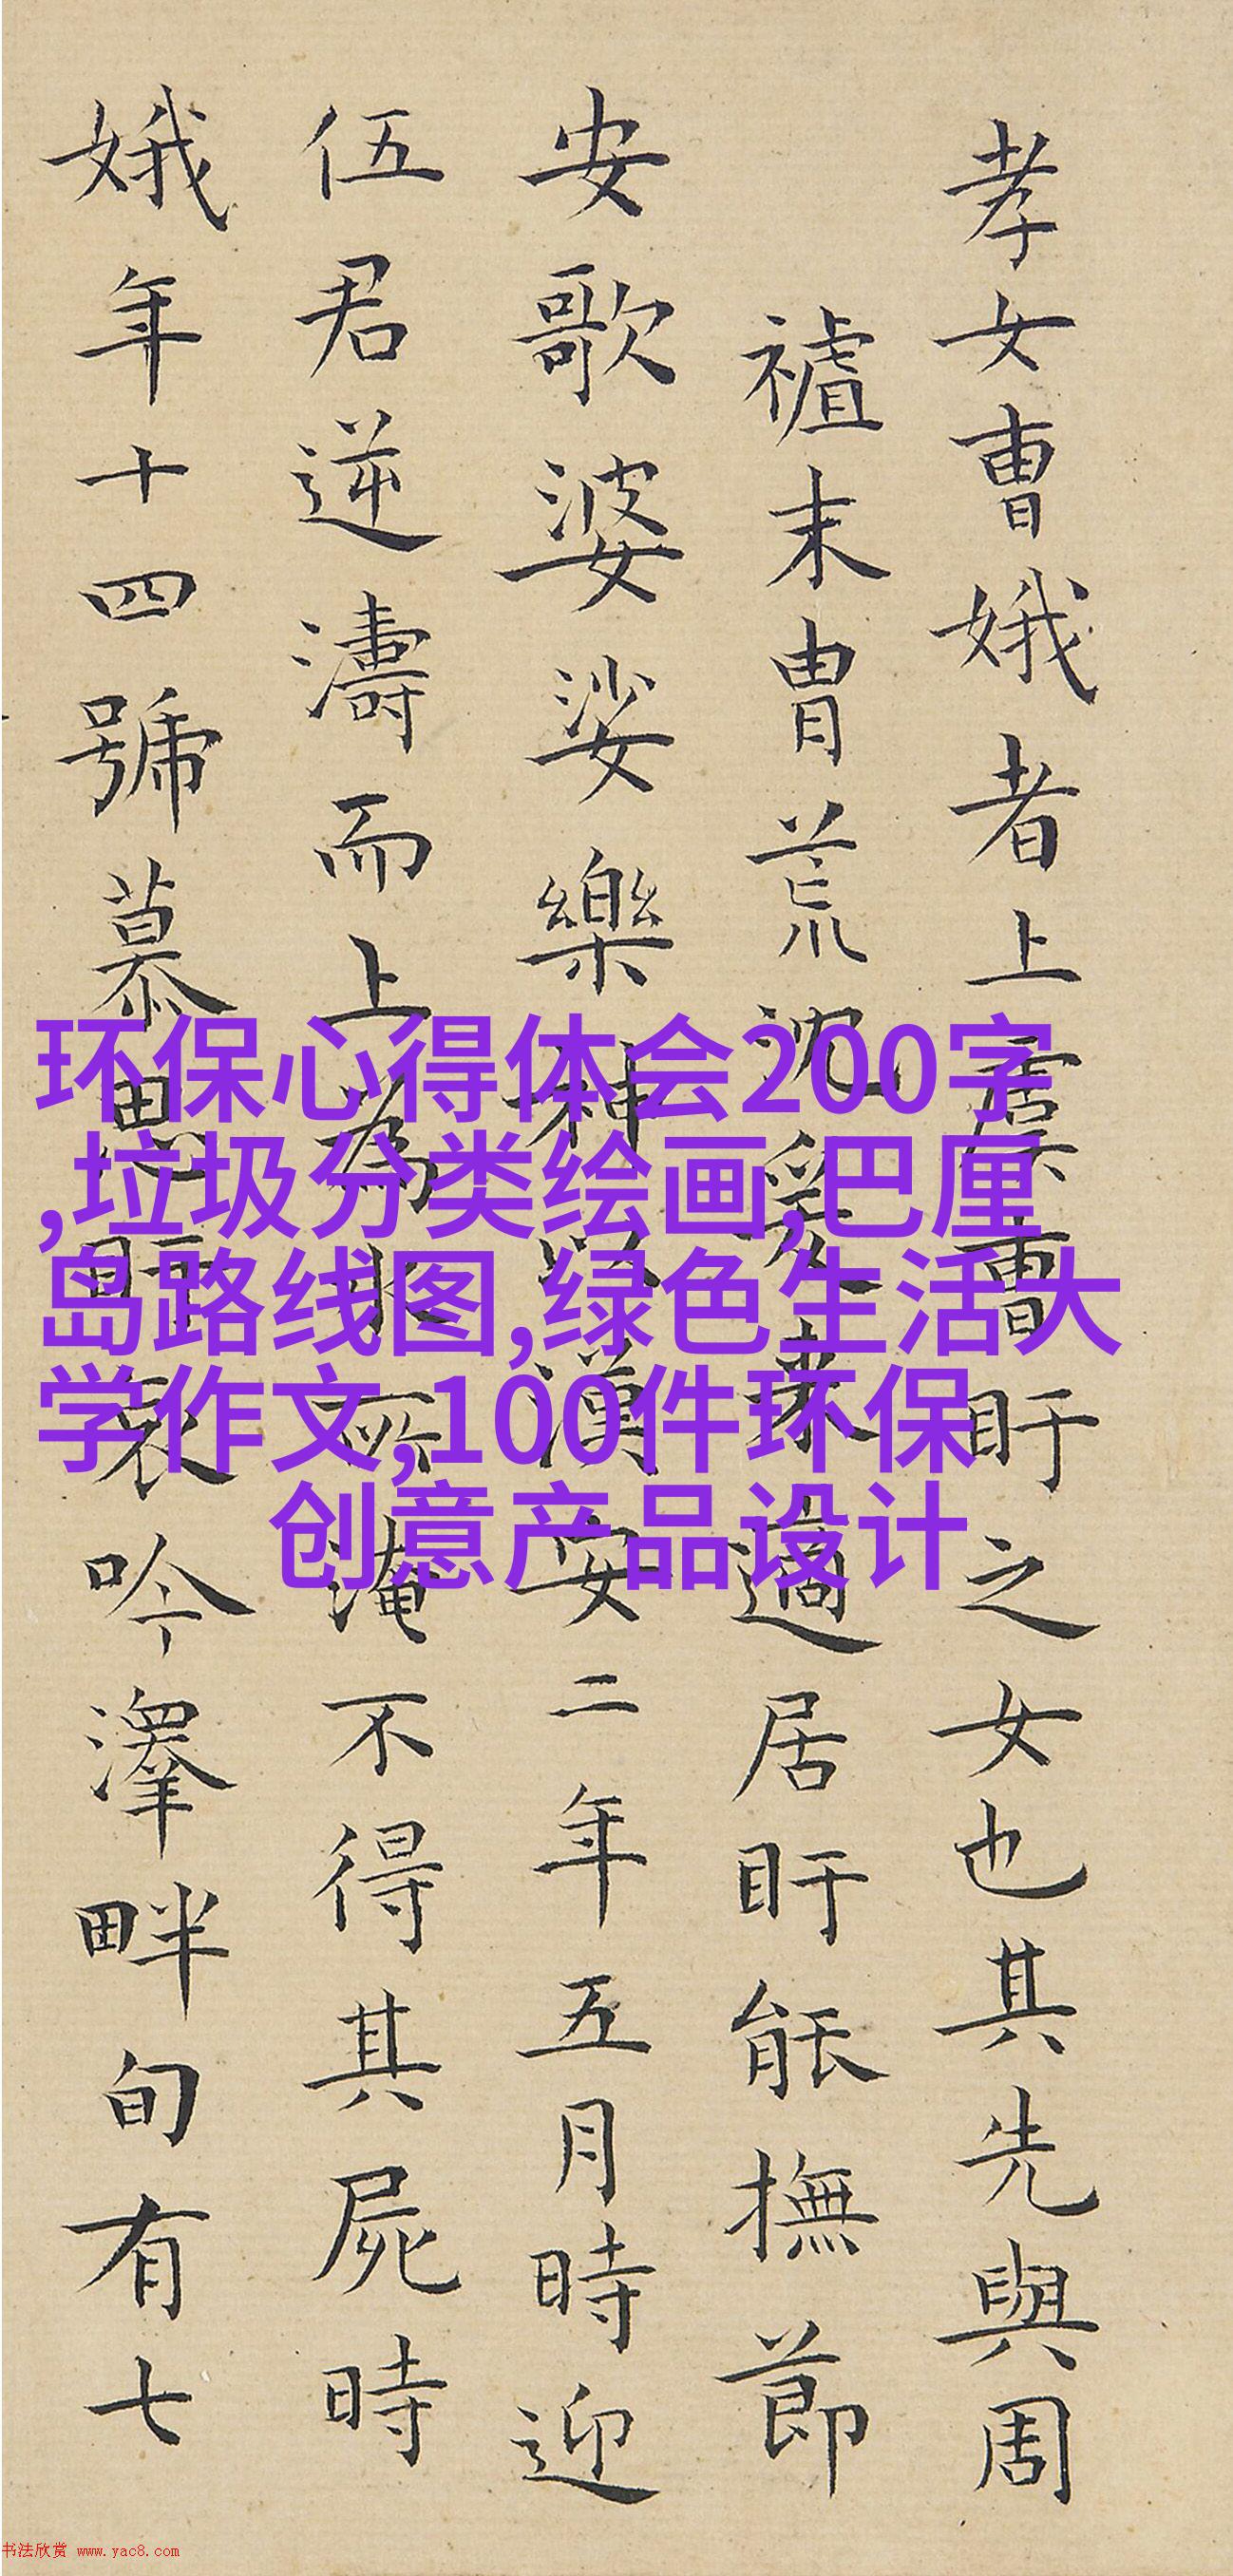 孝女曹娥者上虞曹盱之女也其先與周
末胄荒沈爰來適居盱能撫節
安歌婆娑樂神以漢安二年五月時迎
伍君逆濤而上為水所淹不得其屍時
娥年十四號慕思盱哀吟澤畔旬有七
环保心得体会200字
,垃圾分类绘画,巴厘
岛路线图,绿色生活大
学作文,100件环保
创意产品设计
书法欣赏 www.yac8.com